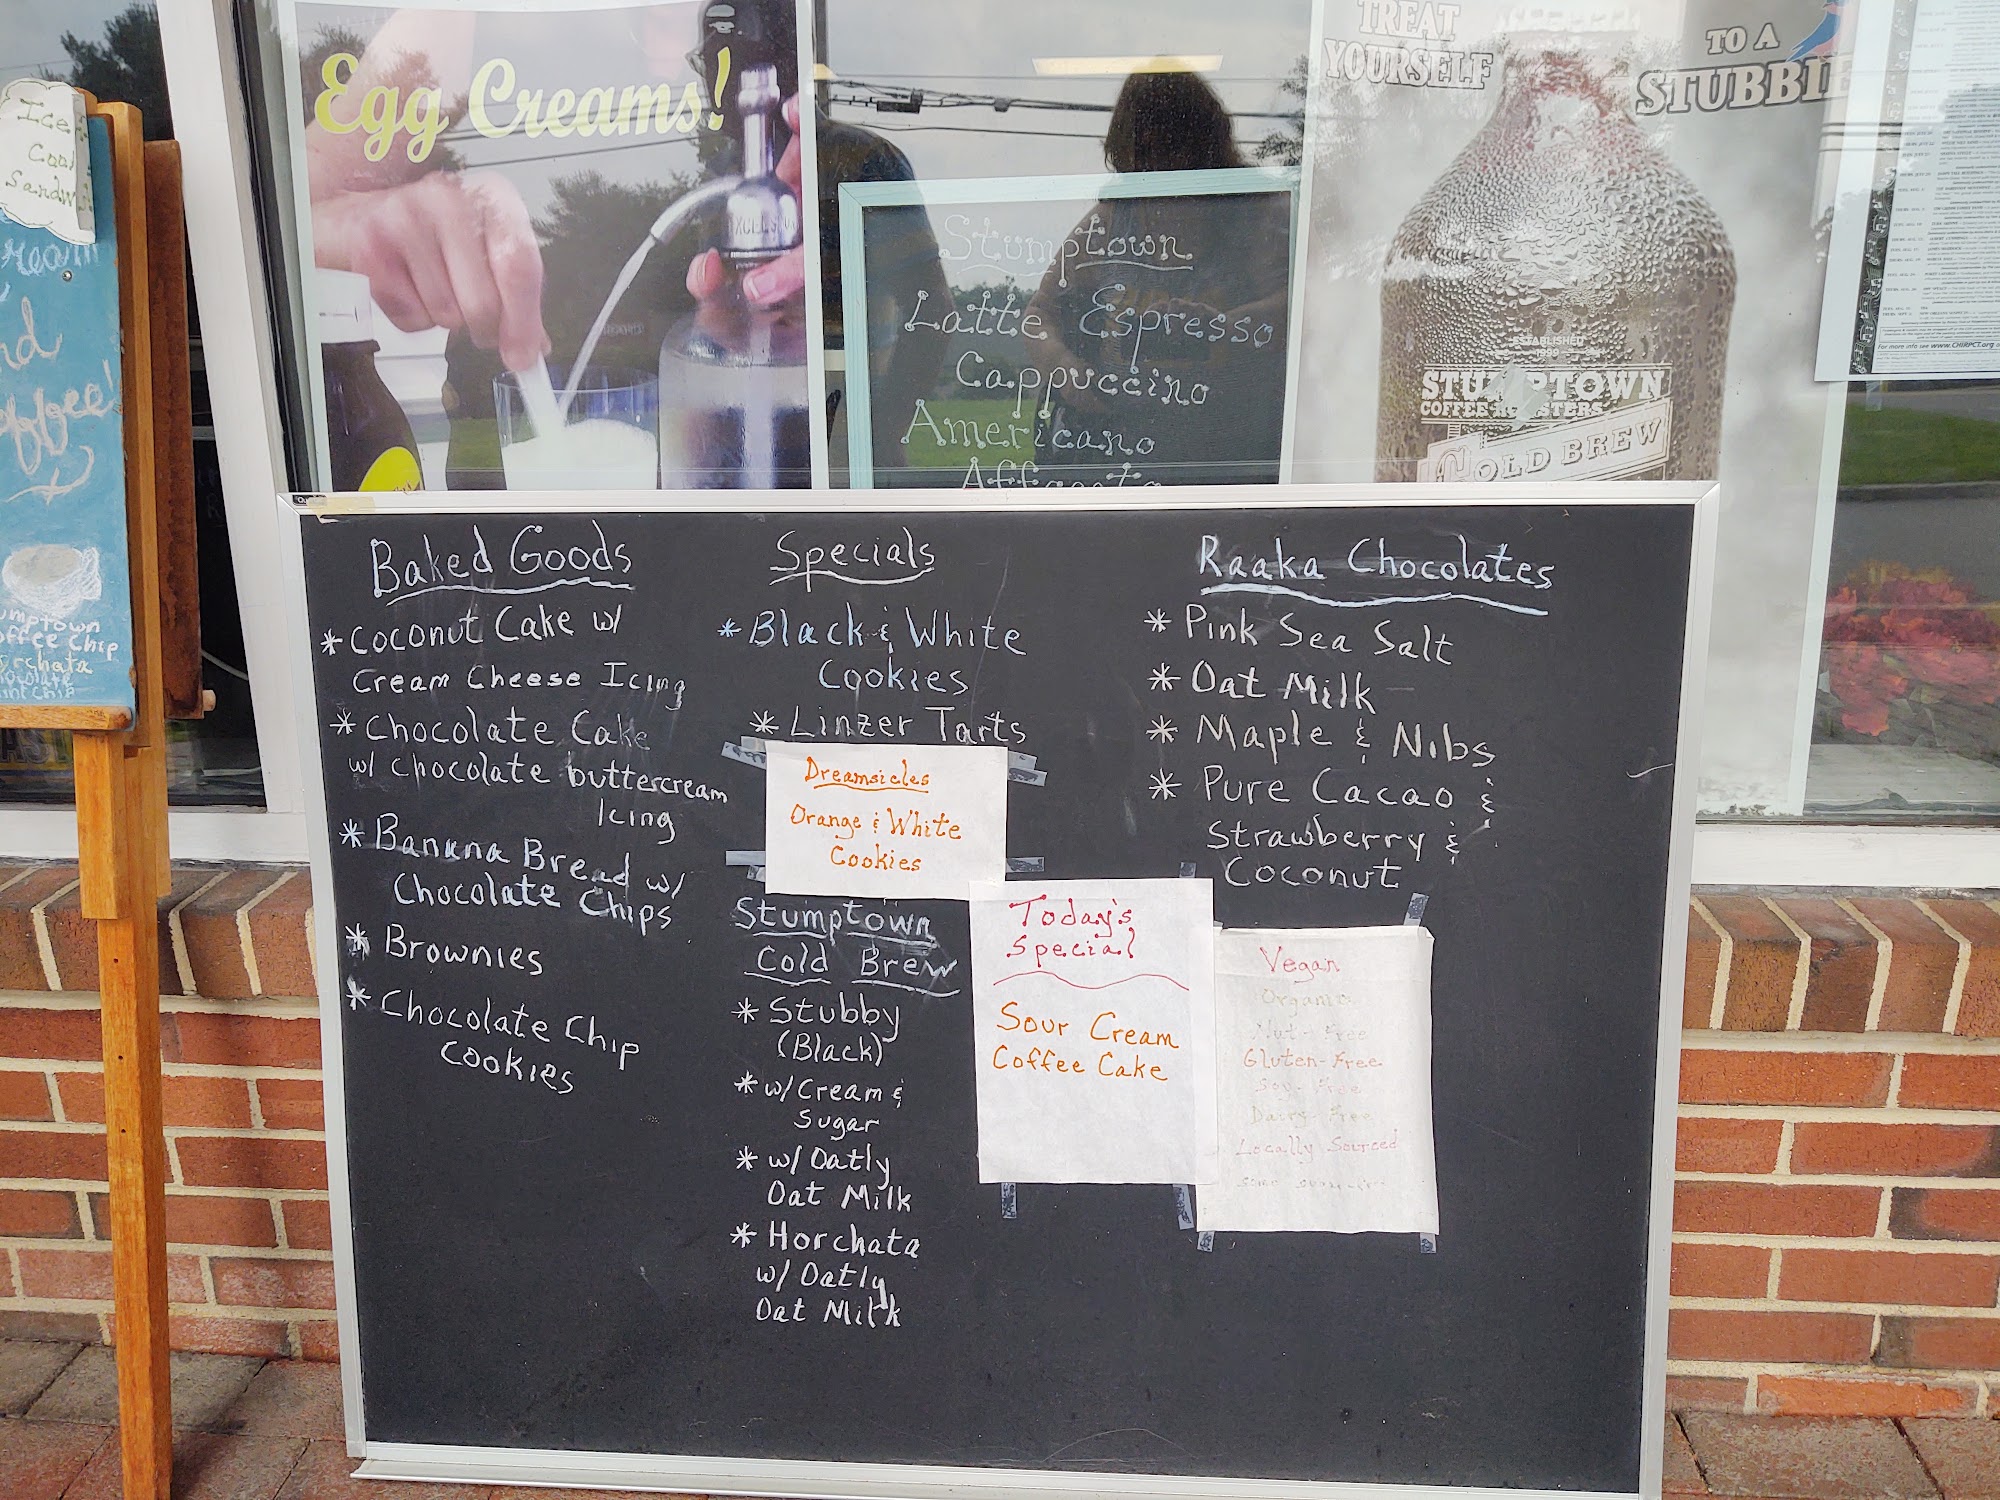 Ice
Cool
Egg Creams!
XCELSIOR
Stumptown
Latte Espresso
Cappuccino
Americano
TREAT
YOURSELF
TO A
STUBBIE
ESTABLISHED
1999
STUMPTOWN
COFFEE ROASTERS
COLD BREW
For more info see www.CHIRPCT.org
Baked Goods
* Coconut Cake w/
Cream Cheese Icing
* Chocolate Cake
w/ chocolate buttercream
Icing
* Banana Bread w/
Chocolate Chips
* Brownies
* Chocolate Chip
Cookies
Specials
* Black & White
Cookies
* Linzer Tarts
Dreamsicles
Orange & White
Cookies
Stumptown
Cold Brew
* Stubby
(Black)
* w/ Cream &
Sugar
* w/ Oatly
Oat Milk
* Horchata
w/ Oatly
Oat Milk
Today's
Special
Sour Cream
Coffee Cake
Raaka Chocolates
* Pink Sea Salt
* Oat Milk
* Maple & Nibs
* Pure Cacao &
Strawberry &
Coconut
Vegan
Organic
Nut-Free
Gluten-Free
Soy-Free
Dairy-Free
Locally Sourced